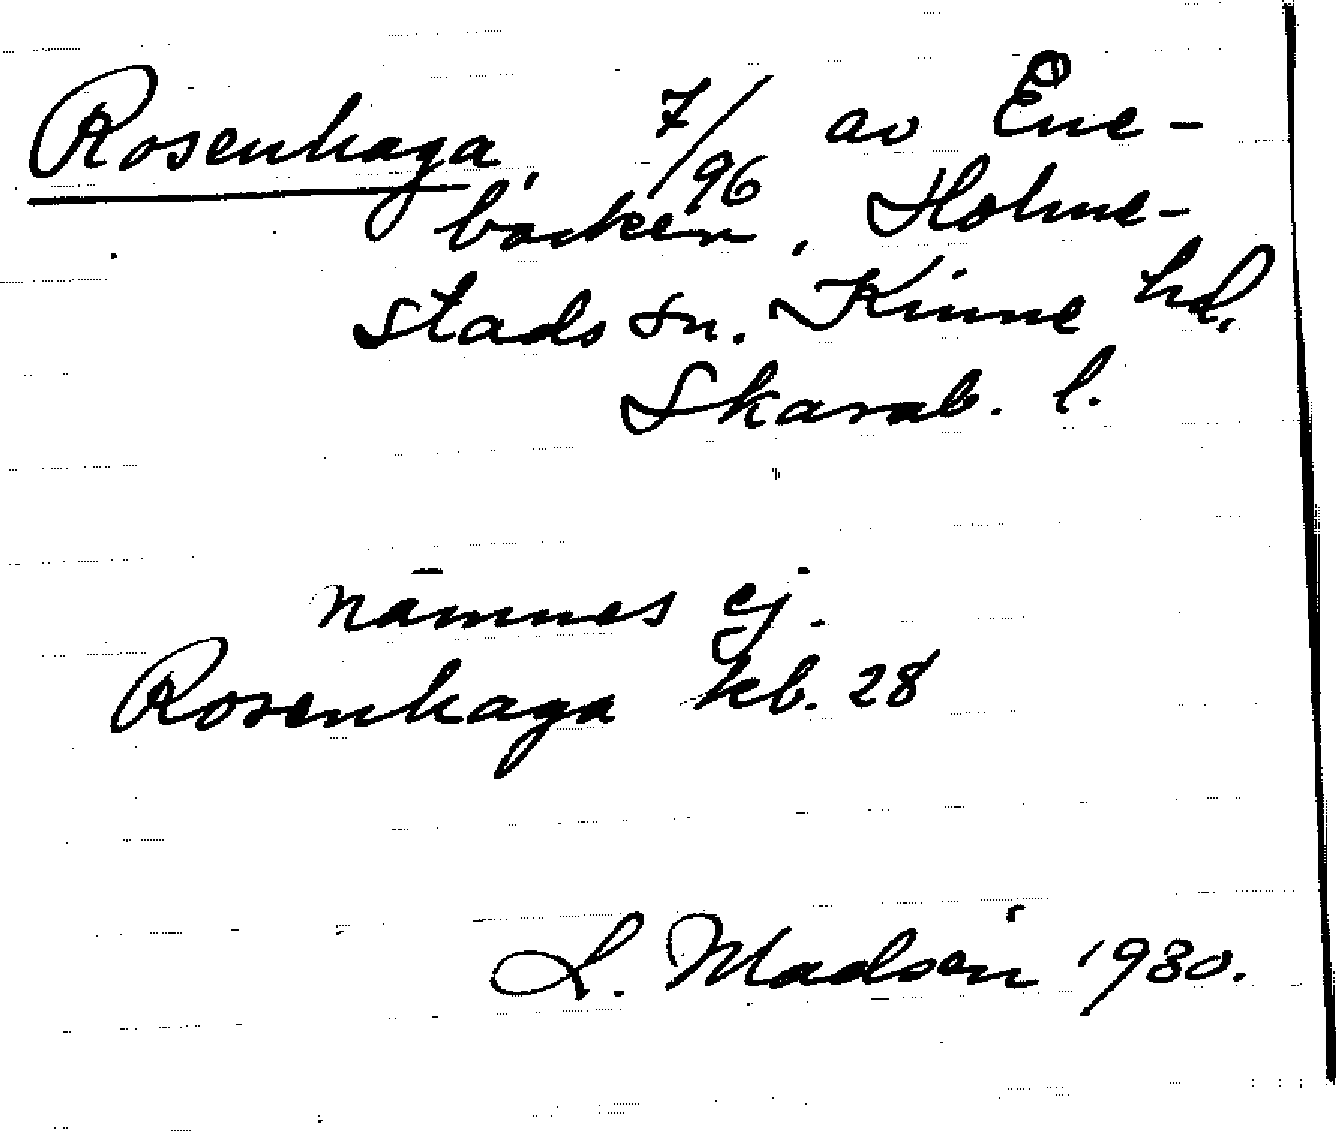 Rosenhaga, 7/96 av Ene-
backen, Holme-
stads sn. Kinne hd,
Skarab. l.
nämnes ej.
Rosenhaga kb. 28
L. Madsén 1930.